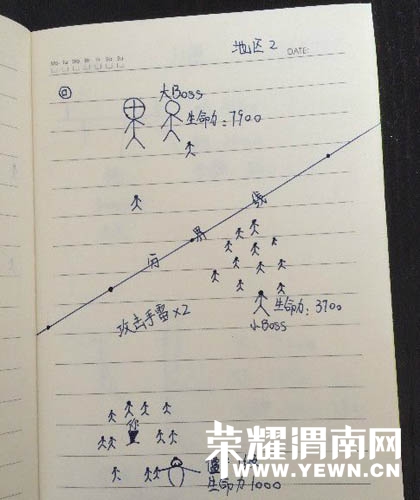 地区 2
Mo Tu We Th Fr Sa Su
DATE:
①
大Boss
生命力：7900
历 界 线
攻击手雷 x2
生命力：3700
小Boss
你
生命力 1000
荣耀渭南网
WWW.YEWN.CN